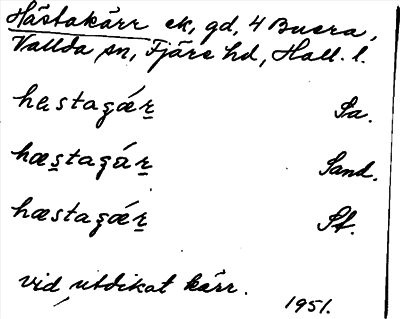 Hästakärr ek, gd, 4 Buera,
Vallda sn, Fjäre hd, Hall. l.
hestagǽr̲ Sa.
hæs̲tagár̲ Sand.
hæstagǽr̲ St.
vid utdikat kärr.
1951.